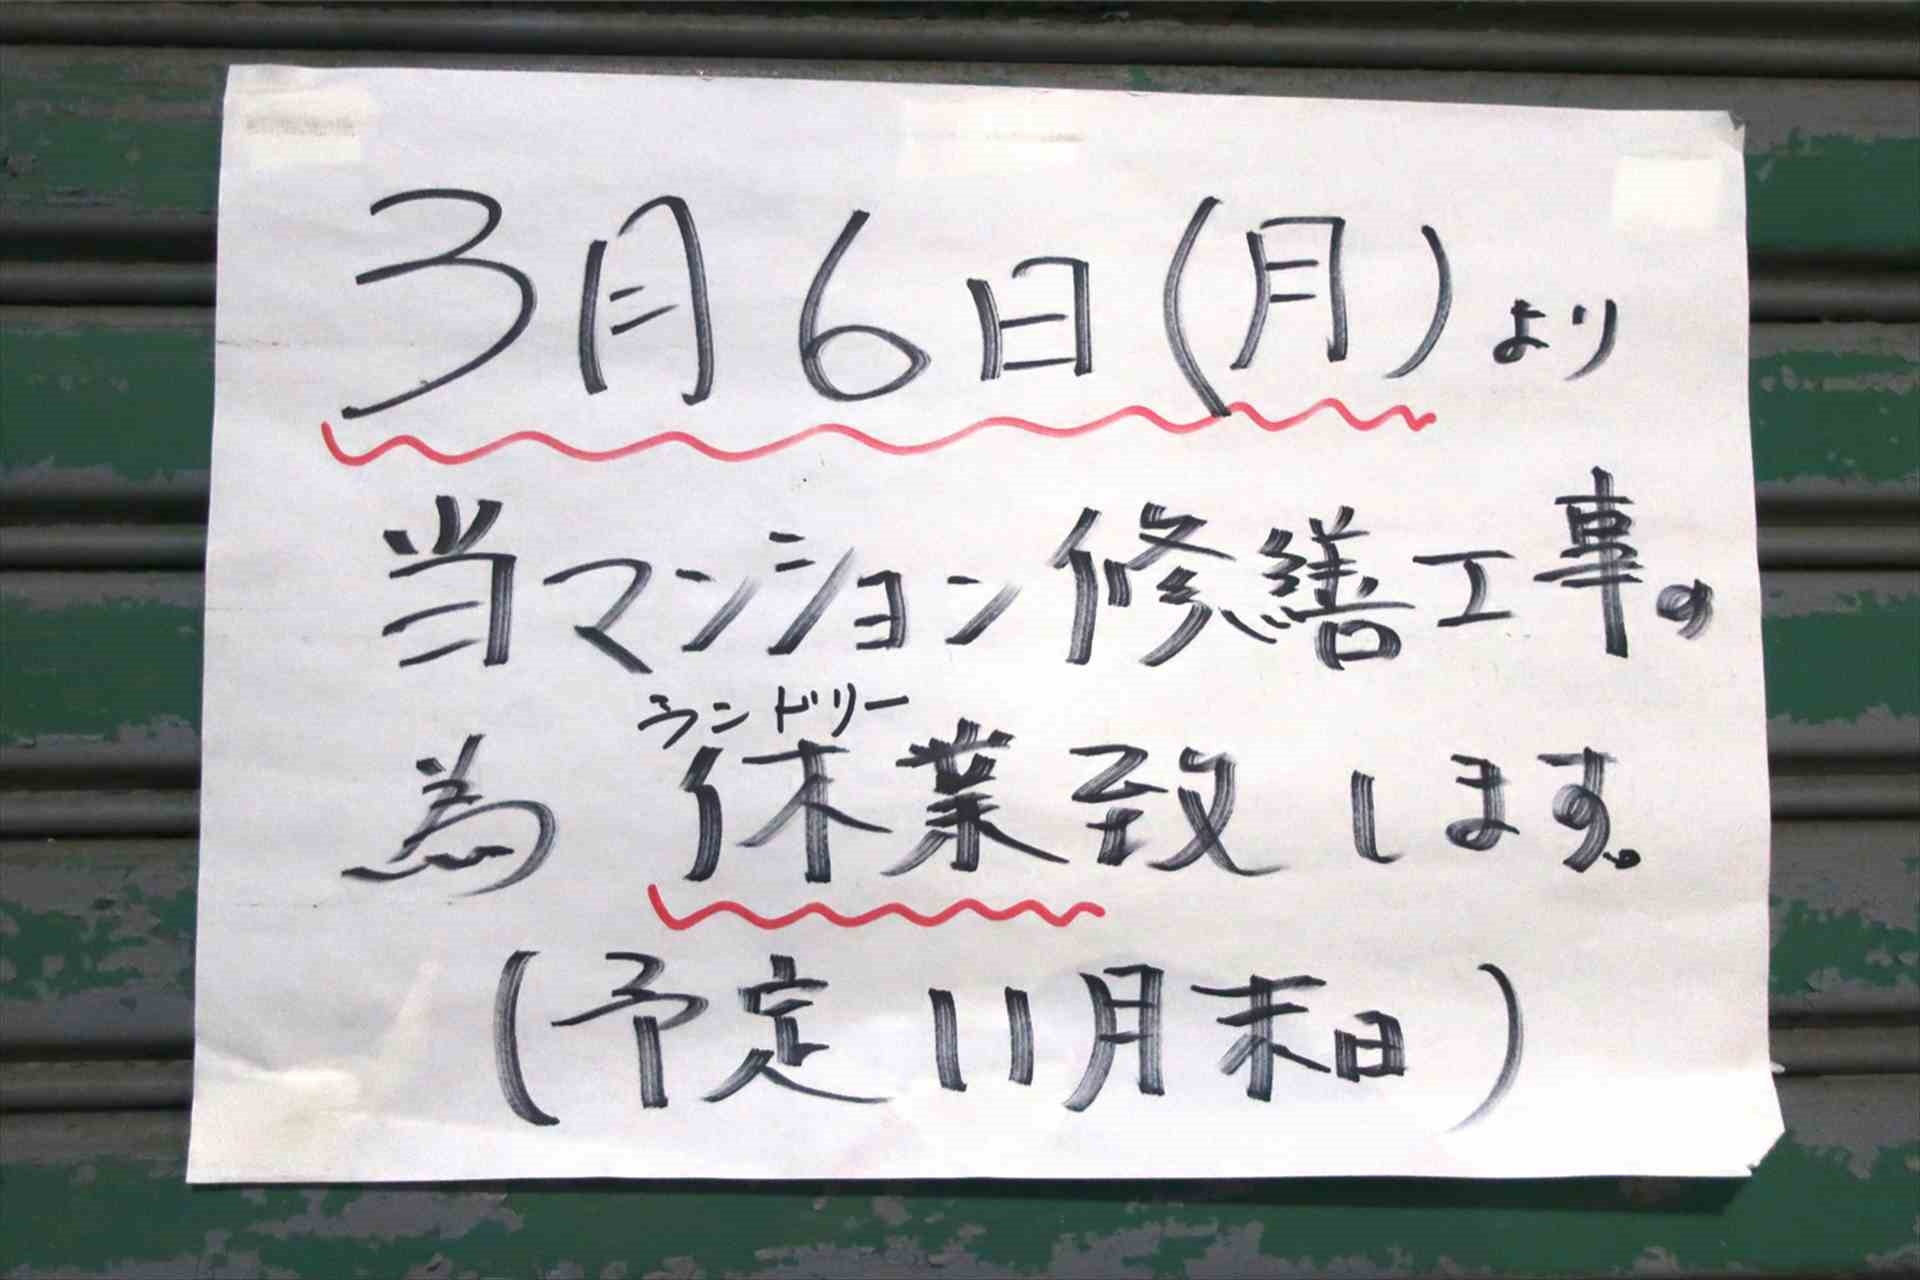 3月6日(月)より
当マンション修繕工事の
ランドリー
為 休業致します。
(予定11月末日)